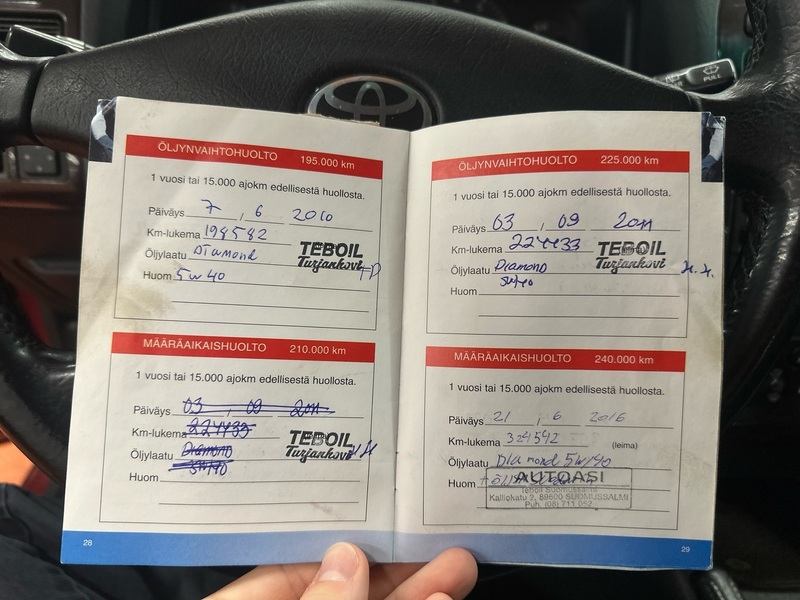 PULL
ÖLJYNVAIHTOHUOLTO 195.000 km
1 vuosi tai 15.000 ajokm edellisestä huollosta.
Päiväys 7 , 6 2010
Km-lukema 198582
Öljylaatu Diamond
Huom 5w40
TEBOIL
Turjankovi
MÄÄRÄAIKAISHUOLTO 210.000 km
1 vuosi tai 15.000 ajokm edellisestä huollosta.
Päiväys 03 , 09 2011
Km-lukema 224433
Öljylaatu Diamond
5W40
Huom
TEBOIL
Turjankovi
28
ÖLJYNVAIHTOHUOLTO 225.000 km
1 vuosi tai 15.000 ajokm edellisestä huollosta.
Päiväys 03 , 09 2011
Km-lukema 224433
Öljylaatu Diamond
5W40
Huom
TEBOIL
Turjankovi
MÄÄRÄAIKAISHUOLTO 240.000 km
1 vuosi tai 15.000 ajokm edellisestä huollosta.
Päiväys 21 , 6 2016
Km-lukema 324542 (leima)
Öljylaatu Diamond 5w40
Huom
AUTOASI
Teboil Suomussalmi
Kalliokatu 2, 89600 SUOMUSSALMI
Puh. (08) 711 052
29